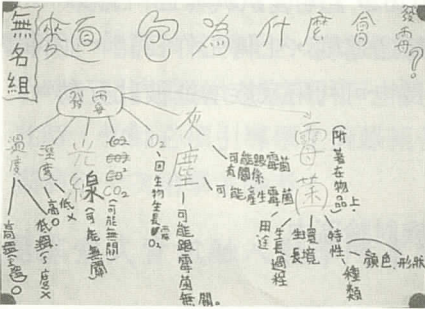 無名組
麵包為什麼會發霉?
發霉
溫度
高無
溼度
高O
低×
光線
水(可能無關)
CO2
(可能無關)
O2
因生物生長需O2
灰塵
可能跟霉菌有關係
可能產生霉菌
可能跟霉菌無關。
霉菌
(附著在物品上)
用途
生長過程
生長環境
特性
種類
顏色
形狀